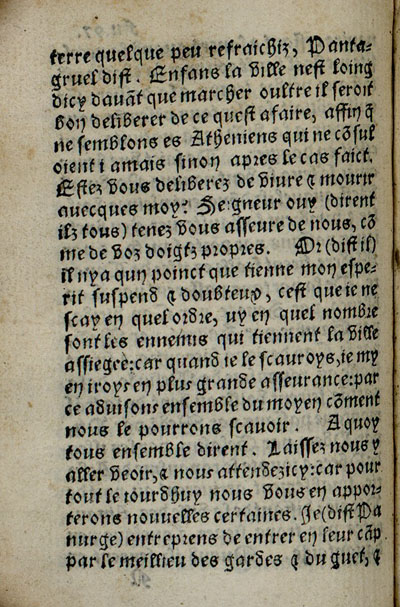 terre quelque peu refraichiz, Panta-
gruel dist. Enfans la ville nest loing
dicy dauãt que marcher oultre il seroit
bon deliberer de ce quest a faire, affin q̃
ne semblons es Atheniens qui ne cõsul
oient iamais sinon apres le cas faict.
Estez vous deliberez de viure & mourir
auecques moy? Seigneur ouy (dirent
ilz tous) tenez vous asseure de nous, cõ
me de voz doigtz propres. Or (dist il)
il nya qun poinct que tienne mon espe-
rit suspend & doubteux, cest que ie ne
scay en quel ordre, ny en quel nombre
sont les ennemis qui tiennent la ville
assiegee: car quand ie le scauroys, ie my
en iroys en plus grande asseurance: par
ce aduisons ensemble du moyen cõment
nous le pourrons scauoir. A quoy
tous ensemble dirent. Laissez nous y
aller veoir, & nous attendez icy: car pour
tout le iourdhuy nous vous en appor-
terons nouuelles certaines. Je (dist Pa
nurge) entreprens de entrer en leur cãp
par le meillieu des gardes & du guet, &